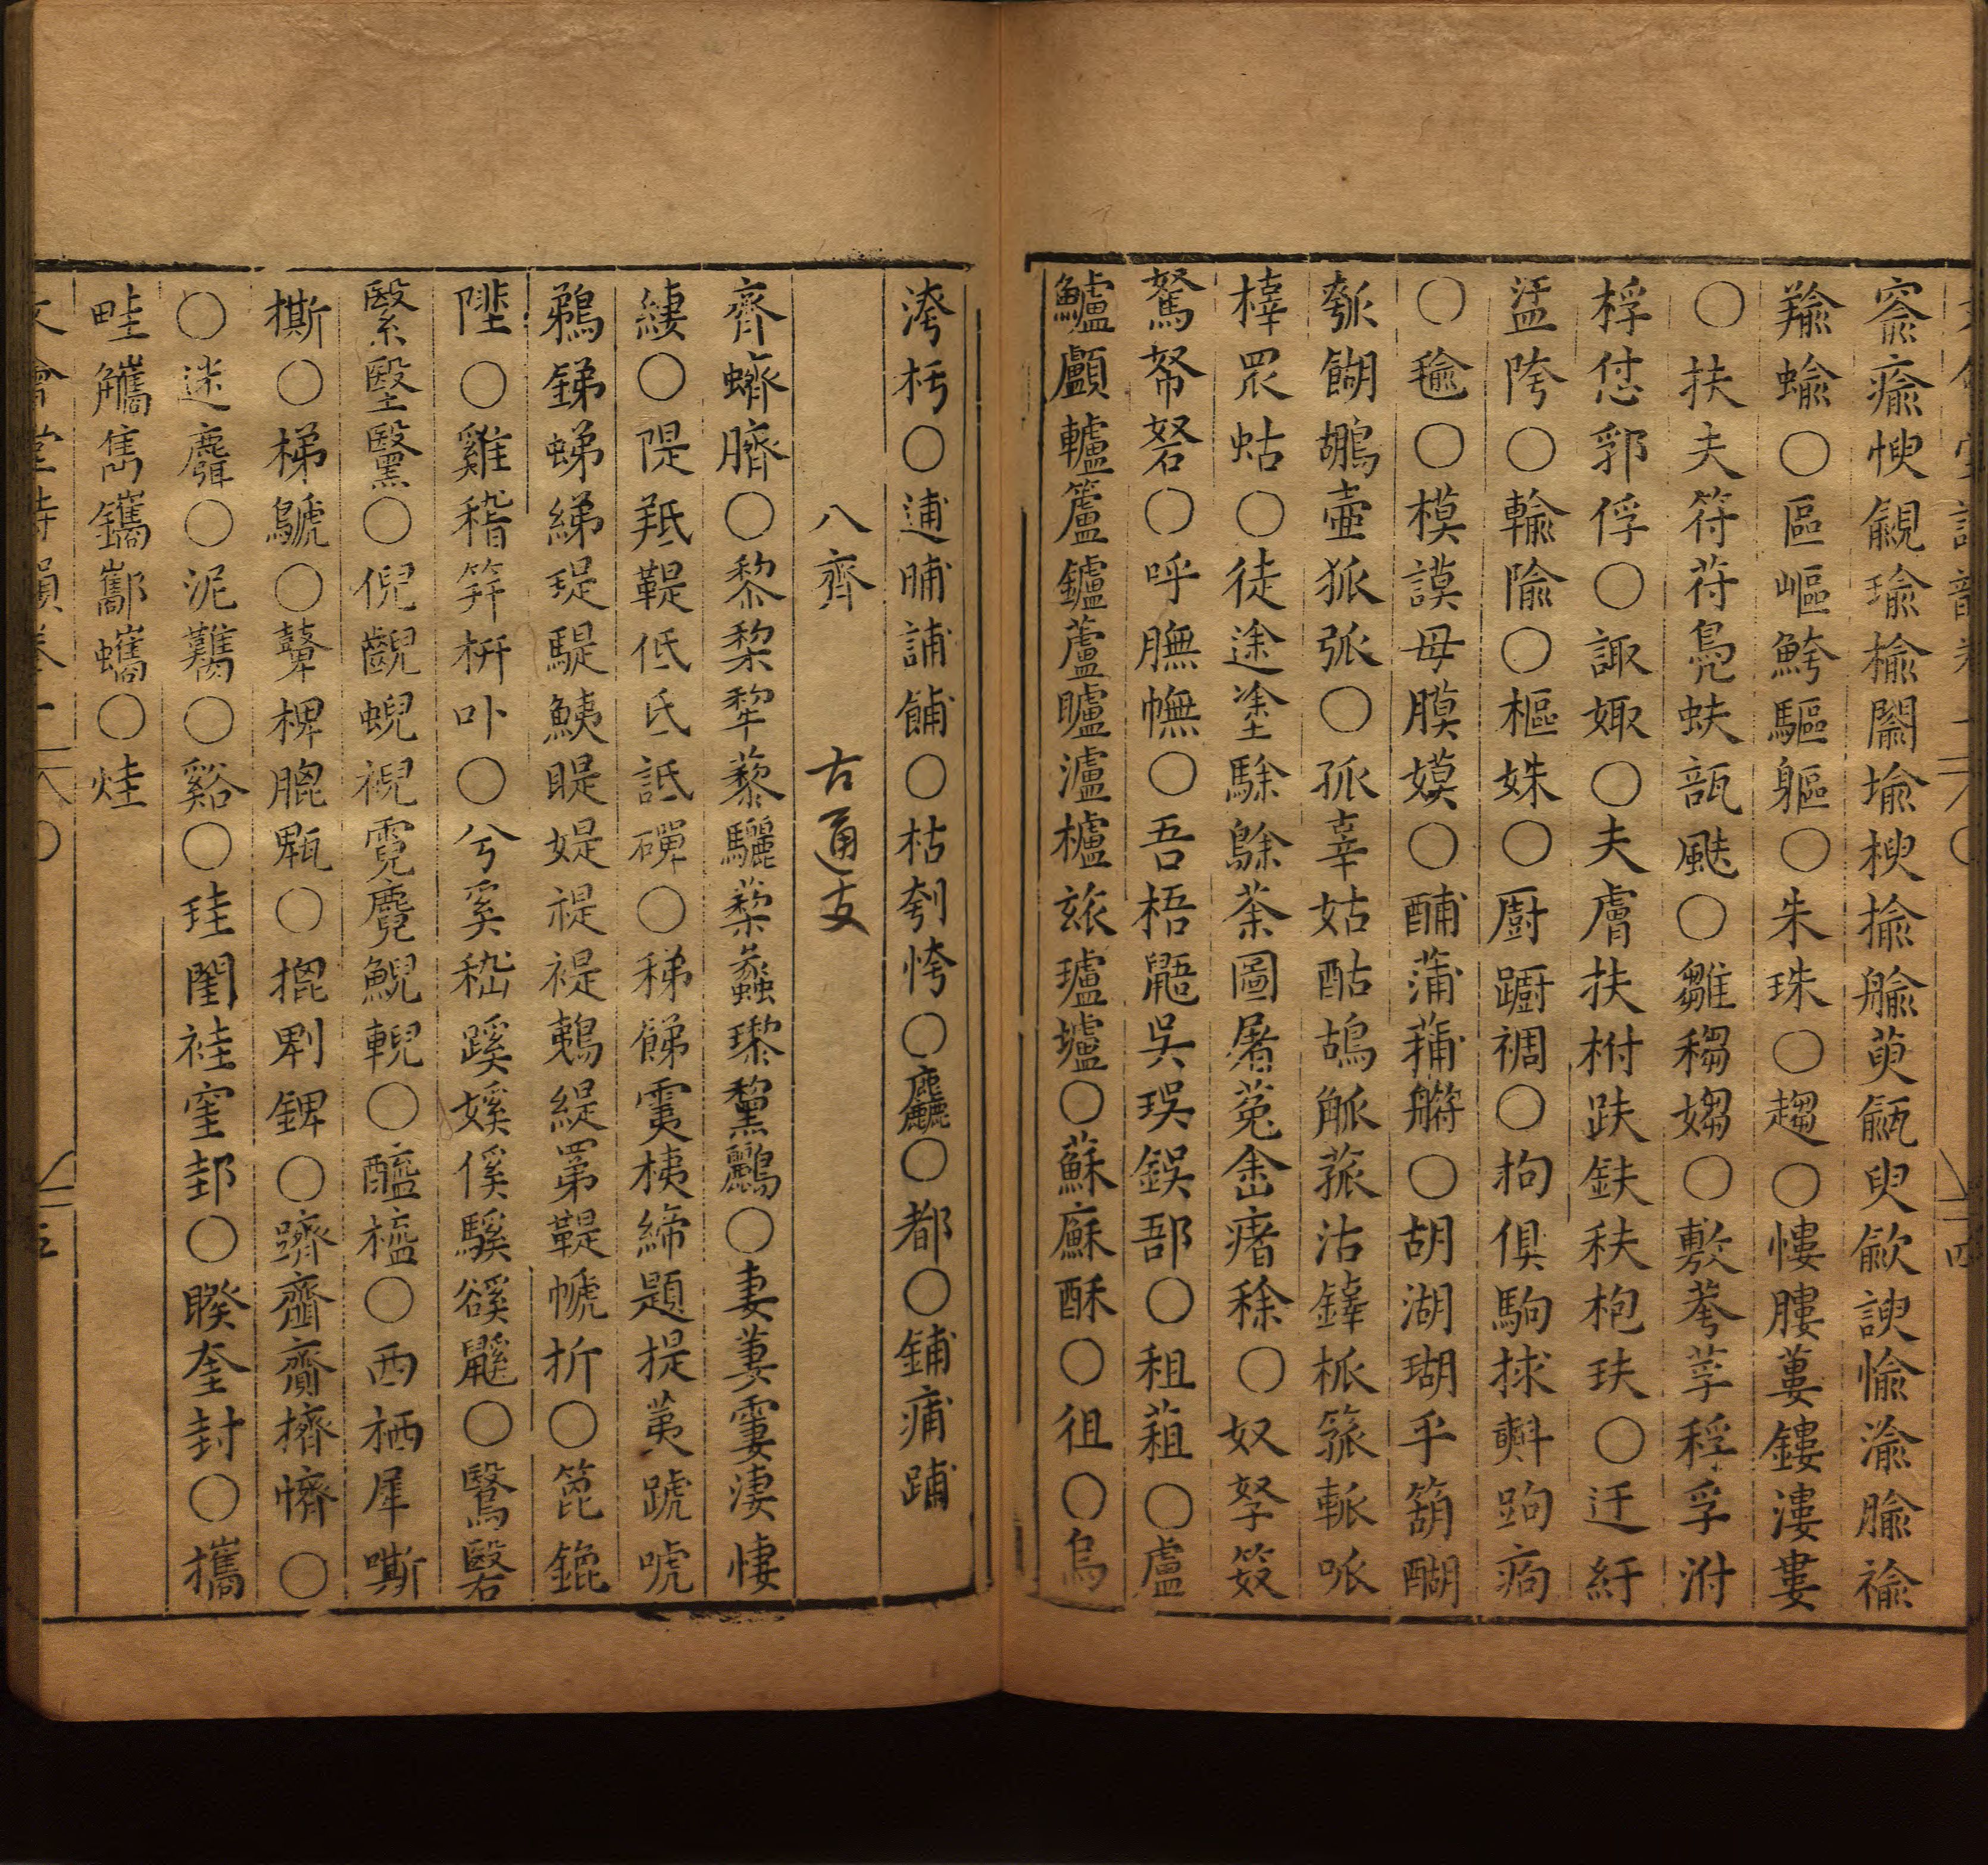 窬瘉愉覦瑜榆闟堬楰揄艅萸㼶臾歈諛愉渝腧褕
羭蝓○區嶇魼驅軀○朱珠○趨○慺膢蔞鏤漊婁
○扶夫符苻鳧蚨瓿颫○雛犓媰○敷荂莩稃孚泭
桴怤郛俘○諏娵○夫膚扶柎趺鈇秩枹玞○迂紆
盓陓○輸隃○樞姝○廚躕裯○拘俱駒捄㪺跔痀
○㼶○模謨母膜嫫○酺蒲蒱艀○胡湖瑚乎箶醐
瓠餬鶘壺狐弧○孤辜姑酤鴣觚菰沽鏵柧箛軱呱
橭罛蛄○徒途塗駼鵌荼圖屠菟峹瘏稌○奴孥笯
駑帑砮○呼膴幠○吾梧鼯吳珸鋘郚○租蒩○盧
鱸顱轤籚鑪蘆矑瀘櫨玈瓐壚○蘇廯酥○徂○烏
洿杇○逋晡誧餔○枯刳恗○麤○都○鋪痡踊
八齊　古通支
齊蠐臍○黎棃犂藜驪蔾蠡瓈黧鸝○妻萋霋淒悽
緀○隄羝鞮低氐詆磾○稊餙䨑桋締題提荑蹏嗁
鵜銻蛦綈瑅騠鮧睼媞禔褆鷤緹罤鞮㡗折○箆錍
陛○雞稽笄枅卟○兮奚嵇蹊嫨傒騱豀鼷○鷖硻
緊堅黳○倪齯蜺䘽霓麑鯢輗○醯榼○西栖犀嘶
撕○梯鷈○鼙椑膍甈○㨽㓟錍○躋齏齎擠懠○
○迷麛○泥臡○谿○珪閨袿窐邽○睽奎刲○攜
畦觿雋鑴酅蠵○烓